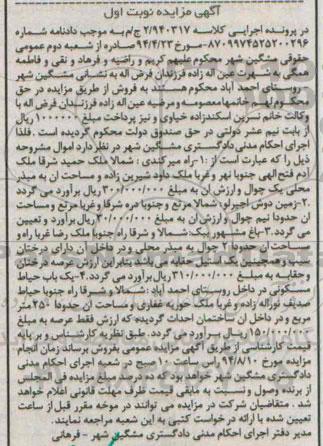 آگهی مزایده نوبت اول
در پرونده اجرایی کلاسه ۲/۹۴۰۳۱۷ ج/م به موجب دادنامه شماره
۸۷۰۹۹۷۴۵۲۵۲۰۰۲۹۶-مورخ ۹۴/۴/۲۳صادره از شعبه دوم عمومی
حقوقی مشگین شهر محکوم علیهم کریم و راضیه و فرهاد و نقی و فاطمه
همگی به شهرت عین اله زاده فرزندان فرض اله به نشانی مشگین شهر
- روستای احمد آباد محکوم هستند به فروش از طریق مزایده در حق
محکوم لهم خانمها معصومه و مرضیه عین اله زاده فرزندان فرض اله با
وکالت خانم نسرین اسکندزاده خیاوی و نیز پرداخت مبلغ ۱۰۰۰۰۰۰ریال
از بابت نیم عشر دولتی در حق صندوق دولت محکوم گردیده است . فلذا
اجرای احکام مدنی دادگستری مشگین شهر در نظر دارد اموال مشروحه
ذیل را که عبارت است از :۱-راه میرکندی : شمالا ملک حمید شرقا ملک
آدم فتح الهی جنوبا نهر و غربا ملک داود شیرین زاده و مساحت ان به میدر
محلی یک چوال و ارزش ان به مبلغ ۳۰۰/۰۰۰/۰۰۰ ریال برآورد می گردد
.۲-زمین دوش آجیرلو: شمالا مرتع و جنوبا دره شرقا و غربا مرتع و مساحت
ان حدودا نیم چوال و ارزش ان به مبلغ ۳۰/۰۰۰/۰۰۰ریال برآورد و تعیین
می گردد.۳-باغ مشهور پیک: شمالا و شرقا راه جنوبا ملک رضا غربا راه و
مساحت ان حدودا ۲ چوال به میدر محلی و در داخل آن دارای درختان
میوه و همچنین یک اصیل حقابه می باشد بنابراین ارزش عرصه درختان
و حقابه به مبلغ ۳۱۰/۰۰۰/۰۰۰ریال برآورد می گردد.۴-یک باب حیاط
مسکونی در داخل روستای احمد آباد : شمالا و شرقا راه جنوبا حیاط
صدیف نوراله زاده و غربا ملک حوریه غفاری و مساحت ان حدودا ۲۵۰متر
مربع و در داخل ان ساختمان احداث گردیده که ارزش فقط عرصه به مبلغ
۱۵۰/۰۰۰/۰۰۰ریال برآورد می گردد. طبق نظریه کارشناس و بر پایه
قیمت کارشناسی از طریق آگهی مزایده عمومی بفروش برساند زمان انجام
مزایده مورخ ۹۴/۸/۱۰ راس ساعت ۱۰ صبح در شعبه اجرای احکام مدنی
دادگستری مشگین شهر خواهد بود که ده درصد مبلغ مزایده فی المجلس
از برنده وصول و نسبت به مابقی قیمت ظرف مهلت قانونی اعلام خواهد
شد . متقاضیان شرکت در مزایده می توانند در موخه مقرر قبل از ساعت
تعیین شده با ارائه درخواست کتبی به این شعبه مراجعه نمایند.
مدیر دفتر اجرای احکام مدنی دادگستری مشگین شهر - فرهانی